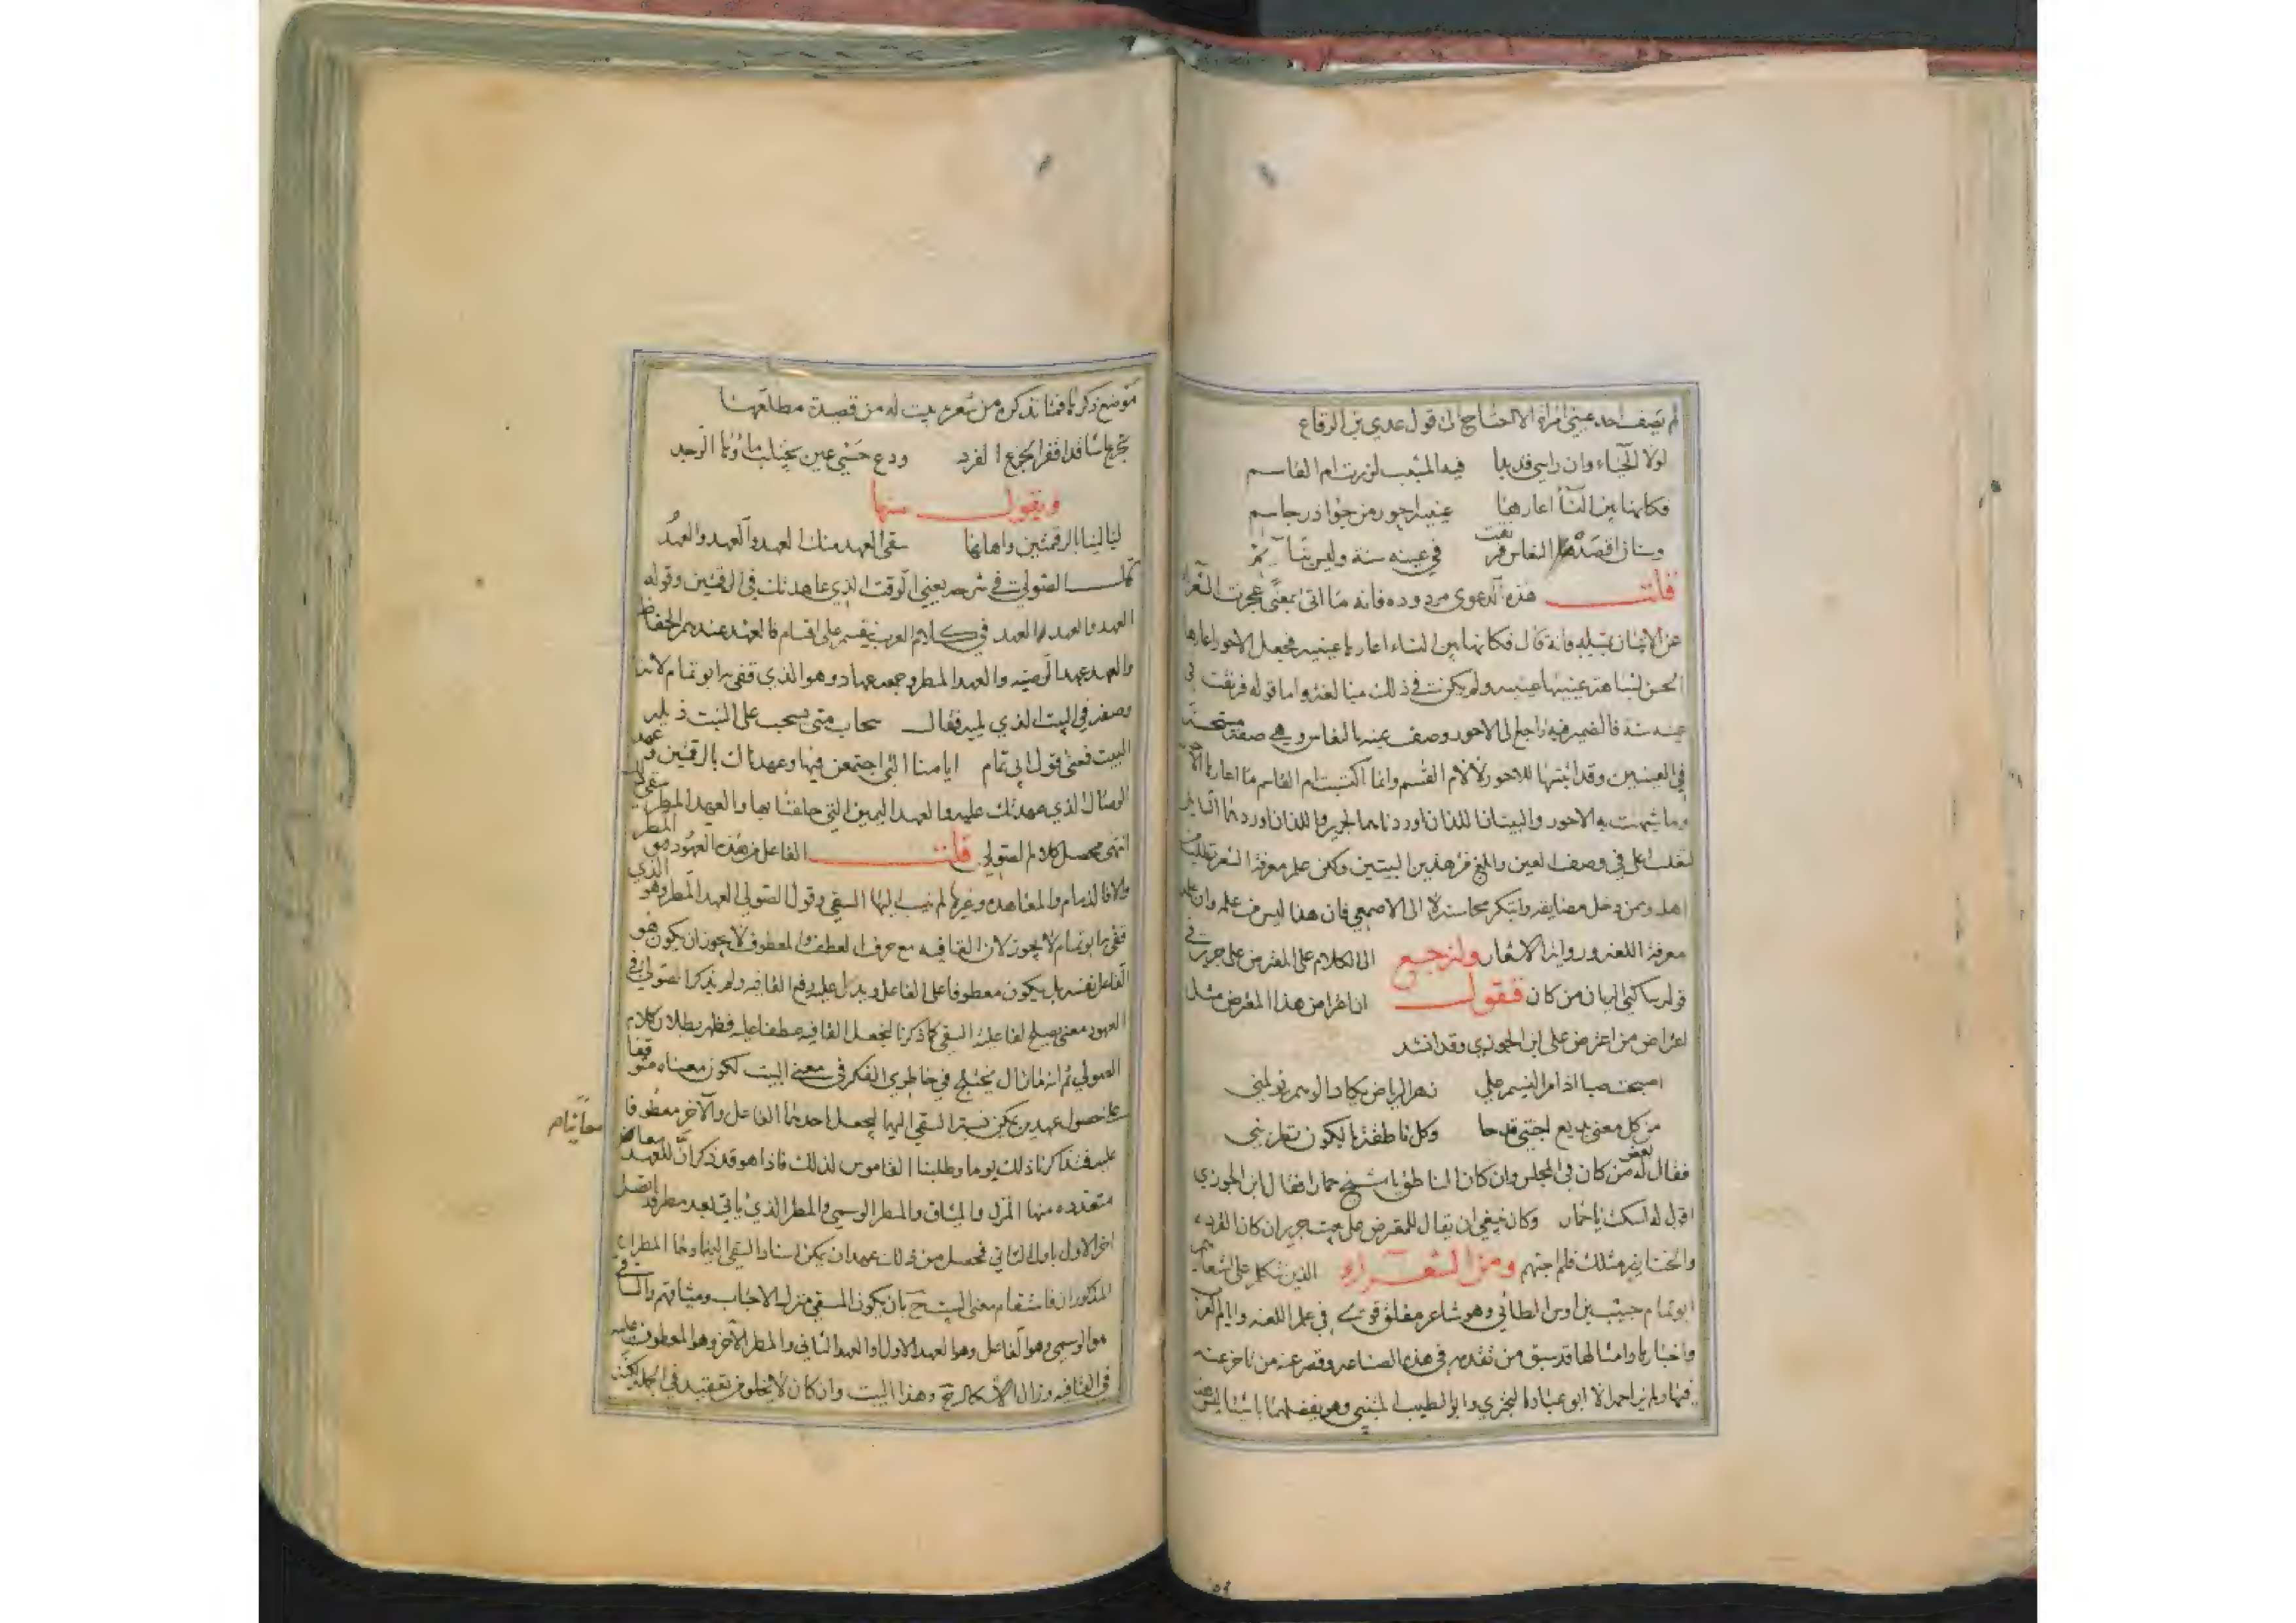 لم يصف احد عيني امراة الا احتاج الى قول عدي بن الرقاع
لولا الحياء وان راسي قد بدا فيه المشيب لزرت ام القاسم
فكانها بين النساء اعارها عينيه احور من جواذر جاسم
وسنان اقصده النعاس فرنقت في عينه سنة وليس بنائم
قلت هذه الدعوى مردوده فانه ما اتى بمعنى عجزت الشعراء
عن الاتيان بمثله فانه قال فكانها بين النساء اعارها عينيه فجعل الاحور اعارها
الحسن لمشابهة عينيها عينيه ولم يكن في ذلك مبالغة واما قوله فرنقت في
عينه سنة فالضمير فيه راجع الى الاحور وصف عينه بالنعاس وهي صفة مستحسنة
في العينين وقد اثبتها للاحور لا لام القسم وانما اكتسبت ام القاسم ما اعارها
وما شبهت به الاحور والبيتان اللذان اوردناهما لجرير واللذان اوردهما
في وصف العين وابلغ من هذين البيتين ولكن علم معرفة الشعر تطلب من
اهله ومن دخل مضايقه وابتكر محاسنه لا الى الاصمعي فان هذا ليس من علمه وان
معرفة اللغه ورواية الاشعار ولنرجع الى الكلام على المعترض على جرير في
قوله يا ساكني الريان من كان فنقول ان اعتراض هذا المعترض مثل
اعتراض من اعترض على ابن الجوزي وقد انشد
اصبحت صبا اذا مر النسيم على زهر الرياض يكاد الوهم يؤلمني
من كل معنى بديع اجتني قدحا وكل ناطقة في الكون تطربني
فقال له بعض من كان في المجلس وان كان الناطق يا شيخ حمارا فقال ابن الجوزي
اقول له اسكت يا حمار وكان ينبغي ان يقال للمعترض على بيت جرير ان كان القرده
والخنازير مثلك فلم احبهم ومن الشعراء الذين تكلم على اشعارهم
ابو تمام حبيب بن اوس الطائي وهو شاعر مفلق قوي في علم اللغه وايام العرب
واخبارها وامثالها قد سبق من تقدمه في هذه الصناعه وقصر عنه من تاخر عنه
فيها ولم يزاحمه الا ابو عباده البحتري وابو الطيب المتنبي وهو يفضلهما باشيا ليس هذا
موضع ذكرها فمما نذكره من شعره بيت له من قصيدة مطلعها
تجرع اسا قد اقفر الجرع الفرد ودع حسي عين يجتلب ماؤها الوجد
ويقول منها
ليالينا بالرقمتين واهلها سقى العهد منك العهد والعهد والعهد
قال الصولي في شرحه يعني الوقت الذي عاهدتك في الرقمتين وقوله
العهد والعهد والعهد في كلام العرب ينقسم على اقسام فالعهد عندهم الحفاظ
والعهد عهد الوصيه والعهد المطر وجمعه عهاد وهو الذي قفى به ابو تمام لانه
وصفه في البيت الذي يليه فقال سحاب متى يسحب على النبت ذيله
البيت فمعنى قول ابي تمام ايامنا التي اجتمعن فيها وعهدناك بالرقمتين وعهد
الوصال الذي عهدتك عليه والعهد اليمين التي حلفت بها والعهد المطر سقى تلك
انتهى محصل كلام الصولي قلت الفاعل من هذه العهود هو المطر
والا فالذمام والمعاهده وغيرها لم ينسب اليها السقي وقول الصولي العهد المطر وهو الذي
قفى به ابو تمام لا يجوز لان القافيه مع حرف العطف والمعطوف لا يجوز ان يكون هو
الفاعل نفسه بل يكون معطوفا على الفاعل ويدل عليه رفع القافيه ولم يذكر الصولي في
العهود معنى يصلح لفاعلية السقي كما ذكرنا ليجعل القافيه عطفا عليه فظهر بطلان كلام
الصولي ثم انه ما زال يختلج في خاطري الفكر في معنى البيت لكون معناه متوقفا
على حصول عهدين يمكن نسبة السقي اليهما ليجعل احدهما الفاعل والاخر معطوفا
معانيا م
عليه فتذاكرنا ذلك يوما وطلبنا القاموس لذلك فاذا هو قد ذكر ان للعهد معان
متعدده منها المنزل والميثاق والمطر الوسمي والمطر الذي ياتي بعد مطر قد اتصل
اخر الاول باول الثاني فحصل من ذلك عهدان يمكن اسناد السقي اليهما وهما المطران
المذكوران فاستقام معنى البيت ح بان يكون المسقي منزل الاحباب وميثاقهم والساقي
هو الوسمي وهو الفاعل وهو العهد الاول والعهد الثاني والمطر الاخر وهو المعطوف عليه
في القافيه وزال الاشكال ح وهذا البيت وان كان لا يخلو من تعقيد في الجمله لكن